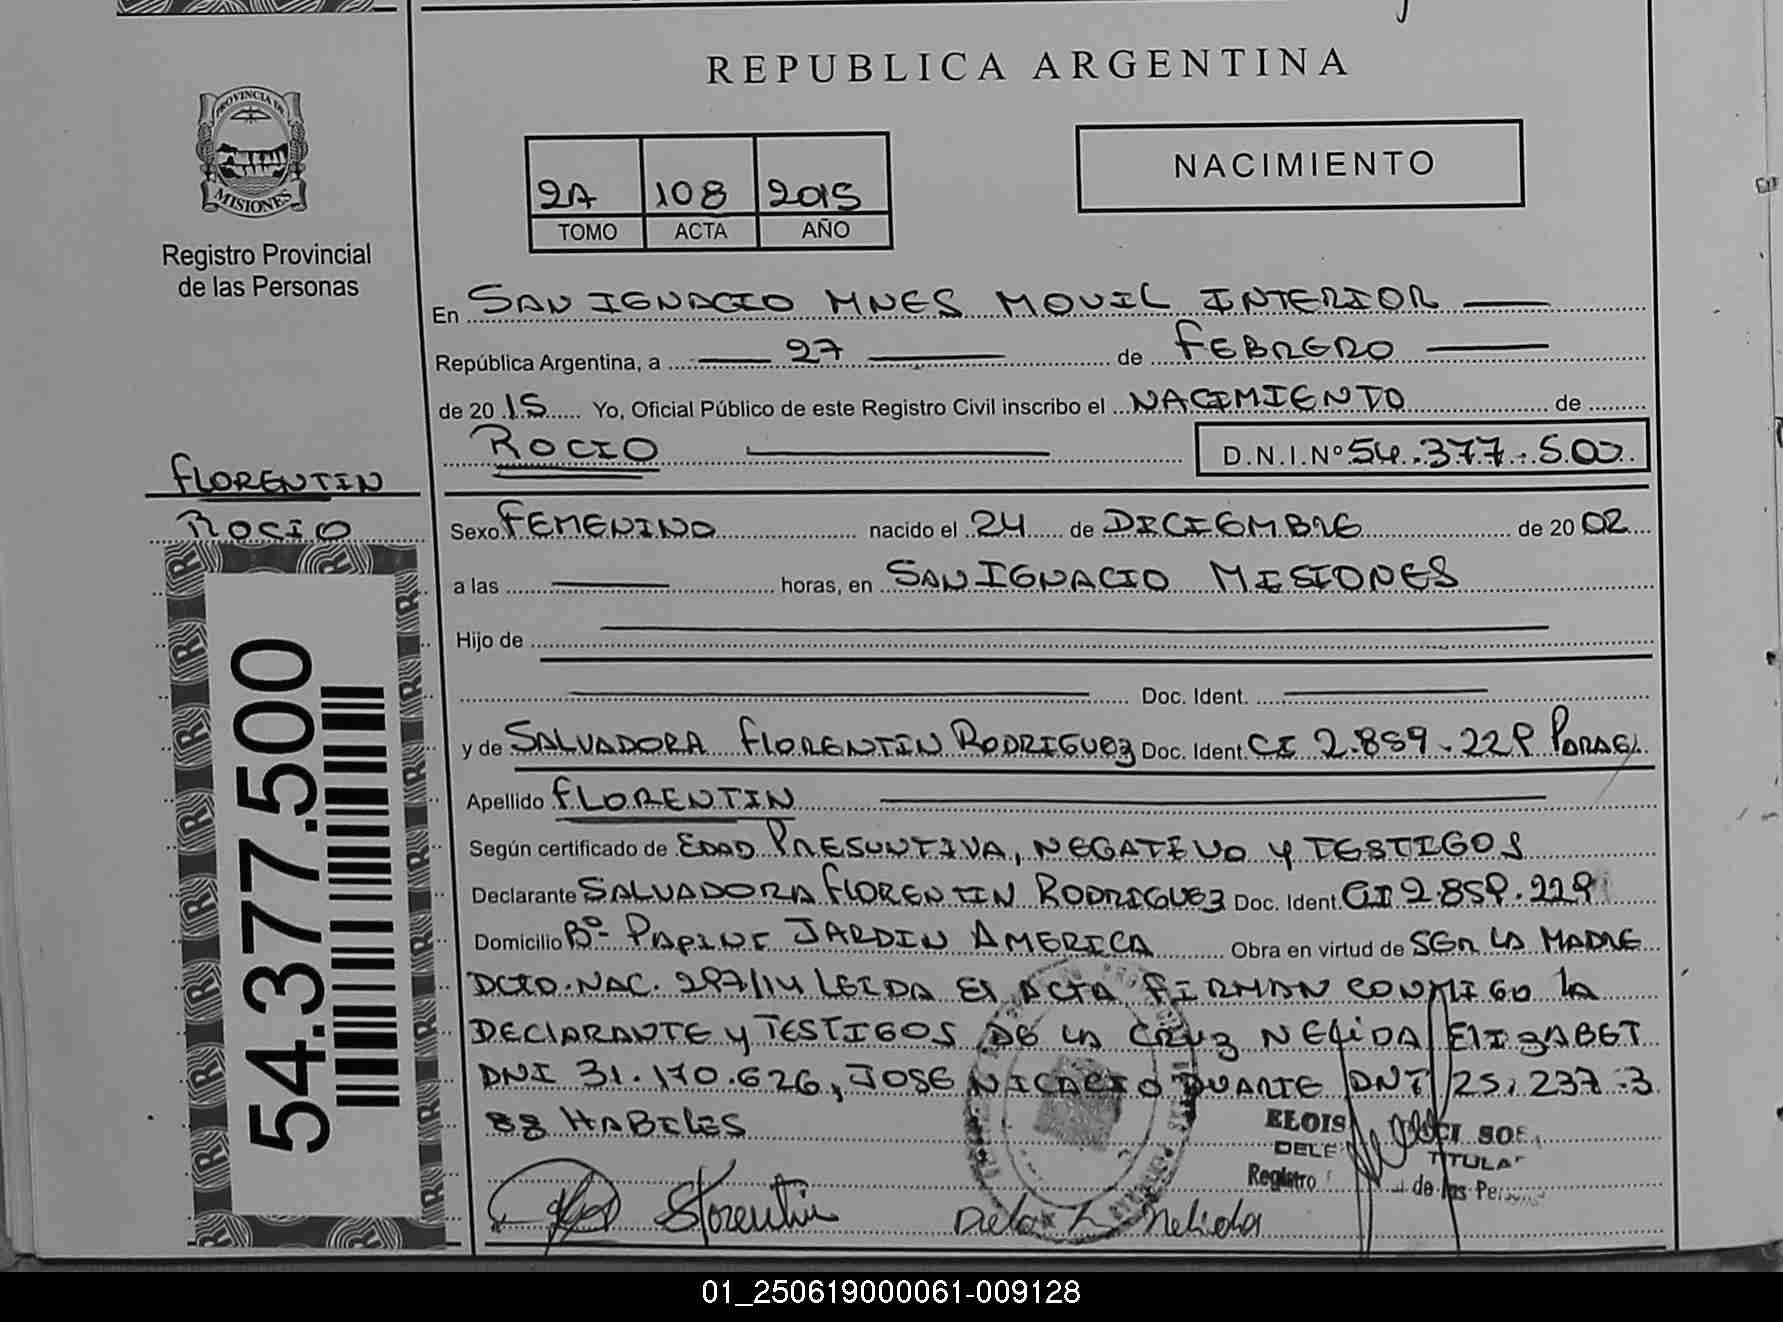 REPUBLICA ARGENTINA
PROVINCIA DE
MISIONES
Registro Provincial
de las Personas
2A 108 2015
TOMO ACTA AÑO
NACIMIENTO
En SAN IGNACIO MNES MOVIL INTERIOR
República Argentina, a 27 de FEBRERO
de 2015 Yo, Oficial Público de este Registro Civil inscribo el NACIMIENTO de
ROCIO D.N.I.Nº 54.377.500
FLORENTIN
ROCIO
54.377.500
Sexo FEMENINO nacido el 24 de DICIEMBRE de 2002
a las horas, en SAN IGNACIO MISIONES
Hijo de
Doc. Ident.
y de SALVADORA FLORENTIN RODRIGUEZ Doc. Ident. CI 2.859.229 PARAG.
Apellido FLORENTIN
Según certificado de EDAD PRESUNTIVA, NEGATIVO Y TESTIGOS
Declarante SALVADORA FLORENTIN RODRIGUEZ Doc. Ident. CI 2.859.229
Domicilio Bº- PAPINI JARDIN AMERICA Obra en virtud de SER LA MADRE
DCTO. NAC. 297/14 LEIDA EL ACTA FIRMAN CONMIGO LA
DECLARANTE Y TESTIGOS DE LA CRUZ NELIDA ELIZABET
DNI 31.170.626, JOSE NICACIO DUARTE DNI 25.237.3
88 HABILES
ELOIS SOS
DELE TITULAR
Registro de las Perso
Florentin
Dela Nelida
01_250619000061-009128